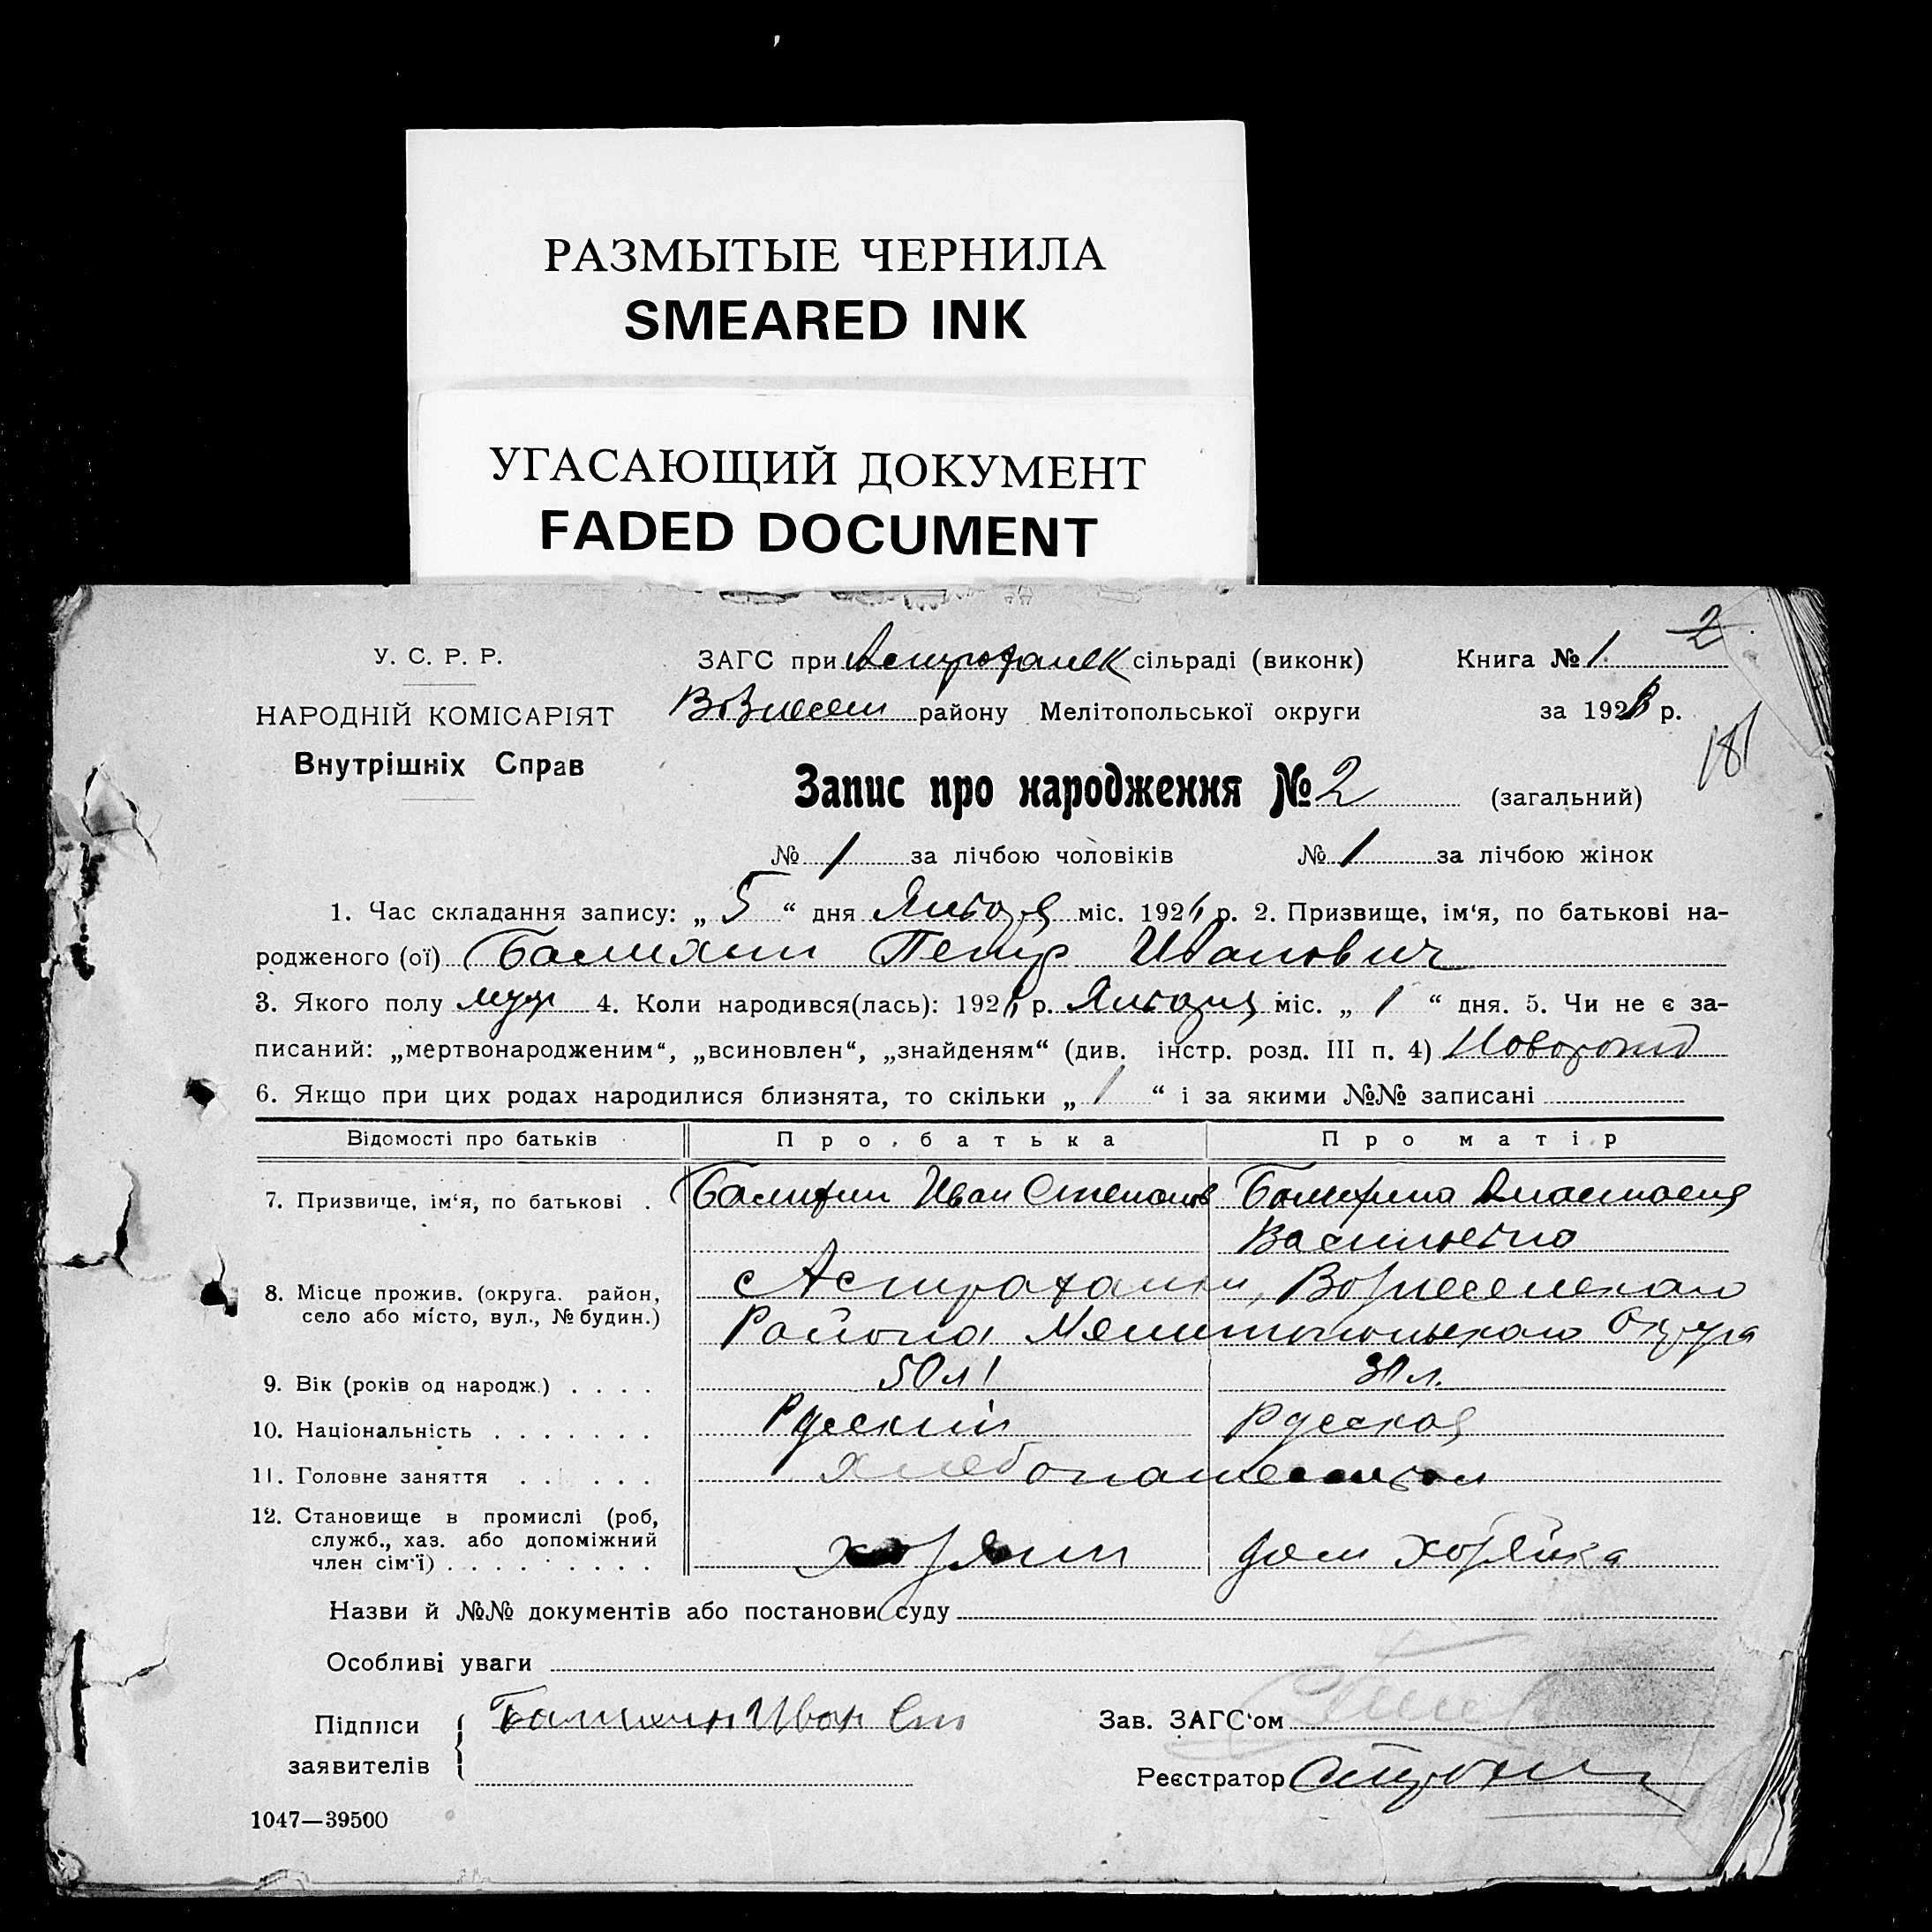 РАЗМЫТЫЕ ЧЕРНИЛА
SMEARED INK
УГАСАЮЩИЙ ДОКУМЕНТ
FADED DOCUMENT
2
У. С. Р. Р. ЗАГС при сільраді (виконк) Книга № 1
НАРОДНІЙ КОМІСАРІЯТ району Мелітопольської округи за 192 р.
Внутрішніх Справ
181
Запис про народження № 2 (загальний)
№ 1 за лічбою чоловіків № 1 за лічбою жінок
1. Час складання запису: „ 5 “ дня Января міс. 192 р. 2. Призвище, ім‘я, по батькові на-
родженого (ої) Балихин Петр Иванович
3. Якого полу муж 4. Коли народився(лась): 192 р. Января міс. „ 1 “ дня. 5. Чи не є за-
писаний: „мертвонародженим“, „всиновлен“, „знайденям“ (див. інстр. розд. III п. 4) Наворожд
6. Якщо при цих родах народилися близнята, то скільки „ 1 “ і за якими №№ записані
Відомості про батьків Про батька Про матір
7. Призвище, ім‘я, по батькові . Балихин Иван Степанов Балихина Анастасия
Васильевна
8. Місце прожив. (округа. район, с Астраханки, Вознесенского
село або місто, вул., № будин.) Района Мелитопольского Округа
9. Вік (років од народж.) . . . . 50 л 30 л.
10. Національність . . . . . . . Русский Русская
11. Головне заняття . . . . . . Хлебопашеством
12. Становище в промислі (роб,
служб., хаз. або допоміжний
член сім‘ї) . . . . . . . . . хозяин дом хозяйка
Назви й №№ документів або постанови суду
Особливі уваги
Підписи Балихин Иван Ст Зав. ЗАГС‘ом
заявителів Реєстратор
1047—39500